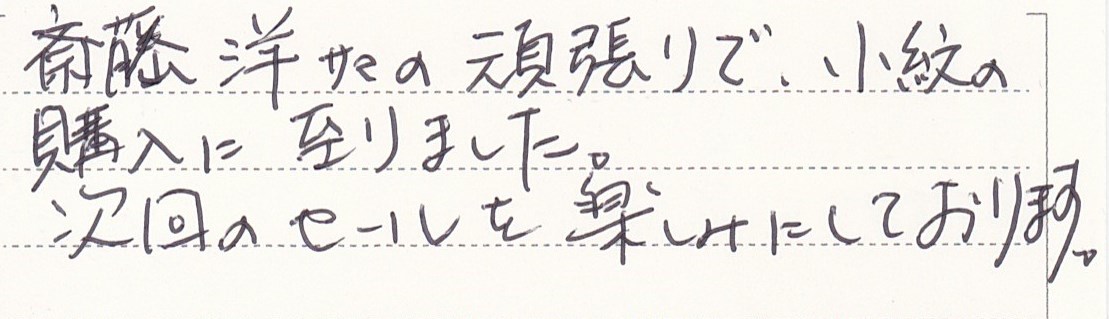 斎藤 洋サマの 頑張りで、小紋の
購入に 至りました。
次回の セールを 楽しみにしております。